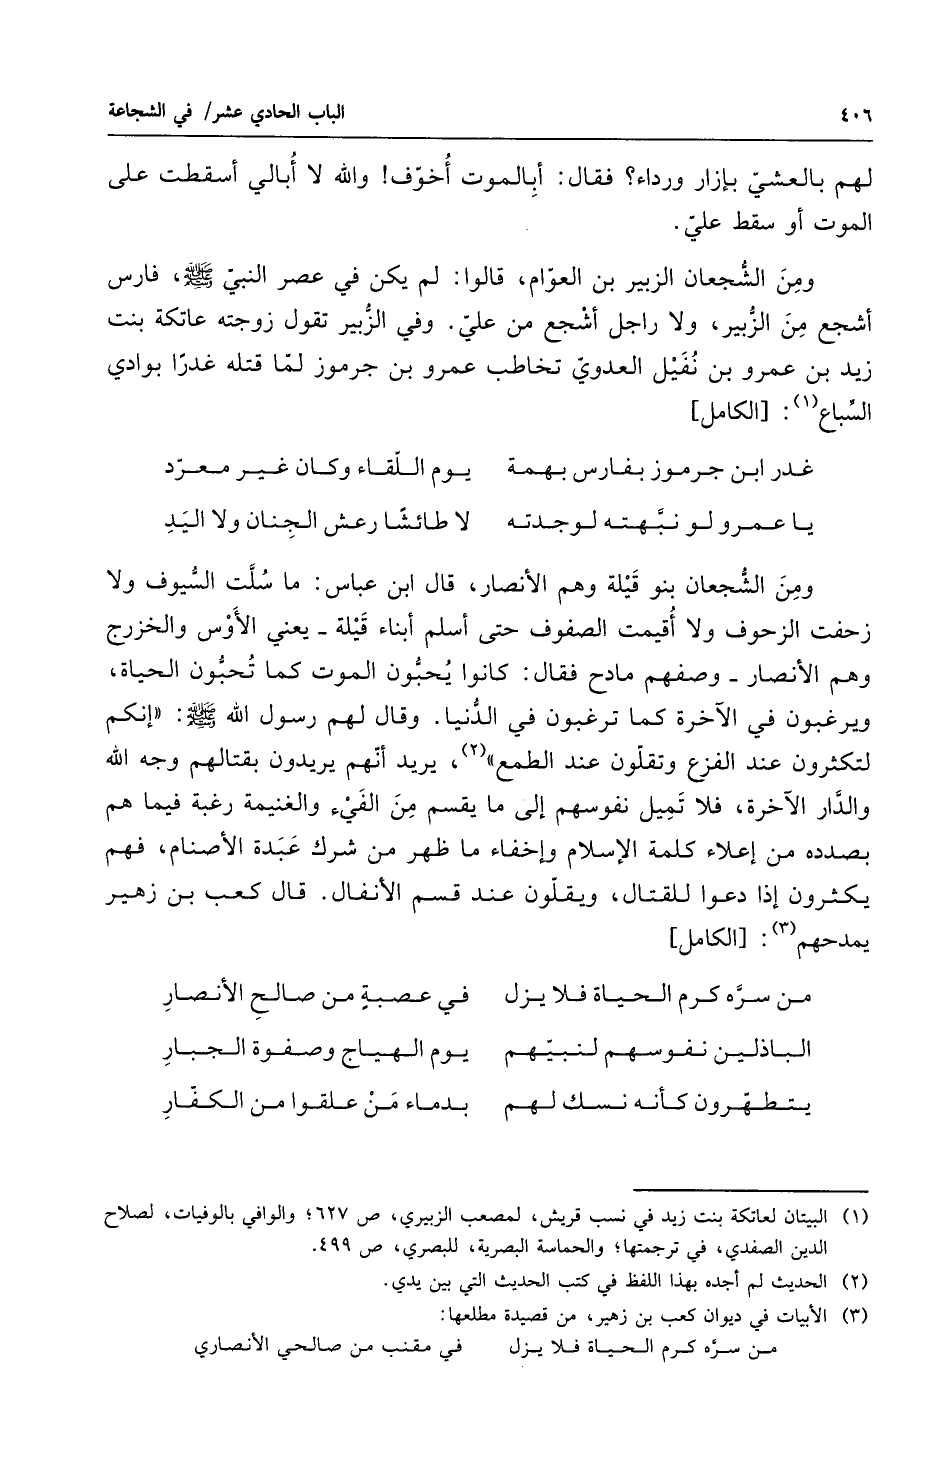 ٤٠٦ الباب الحادي عشر/ في الشجاعة
لهم بالعشيّ بإزار ورداء؟ فقال: أبِالموت أُخوّف! والله لا أُبالي أسقطت على
الموت أو سقط عليّ.
ومِنَ الشُّجعان الزبير بن العوّام، قالوا: لم يكن في عصر النبيّ ﷺ، فارس
أشجع مِنَ الزُّبير، ولا راجل أشْجع من عليّ. وفي الزُّبير تقول زوجته عاتكة بنت
زيد بن عمرو بن نُفَيْل العدويّ تخاطب عمرو بن جرموز لمّا قتله غدرًا بوادي
السِّباع(١): [الكامل]
غدر ابن جرموز بفارس بهمة يوم اللّقاء وكان غير معرّد
يا عمرو لو نبَّهته لوجدته لا طائشًا رعش الجنان ولا اليَدِ
ومِنَ الشُّجعان بنو قَيْلة وهم الأنصار، قال ابن عباس: ما سُلَّت السُّيوف ولا
زحفت الزحوف ولا أُقيمت الصفوف حتى أسلم أبناء قَيْلة ـ يعني الأَوْس والخزرج
وهم الأنصار ـ وصفهم مادح فقال: كانوا يُحبُّون الموت كما تُحبُّون الحياة،
ويرغبون في الآخرة كما ترغبون في الدُّنيا. وقال لهم رسول الله ﷺ: «إنكم
لتكثرون عند الفزع وتقلّون عند الطمع»(٢)، يريد أنّهم يريدون بقتالهم وجه الله
والدَّار الآخرة، فلا تَمِيل نفوسهم إلى ما يقسم مِنَ الفَيْء والغنيمة رغبة فيما هم
بصدده من إعلاء كلمة الإسلام وإخفاء ما ظهر من شرك عَبَدة الأصنام، فهم
يكثرون إذا دعوا للقتال، ويقلّون عند قسم الأنفال. قال كعب بن زهير
يمدحهم(٣): [الكامل]
من سرَّه كرم الحياة فلا يزل في عصبةٍ من صالحِ الأنصارِ
الباذلين نفوسهم لنبيّهم يوم الهياج وصفوة الجبارِ
يتطهّرون كأنه نسك لهم بدماء مَنْ علقوا من الكفّارِ
(١) البيتان لعاتكة بنت زيد في نسب قريش، لمصعب الزبيري، ص ٦٢٧؛ والوافي بالوفيات، لصلاح
الدين الصفدي، في ترجمتها؛ والحماسة البصرية، للبصري، ص ٤٩٩.
(٢) الحديث لم أجده بهذا اللفظ في كتب الحديث التي بين يدي.
(٣) الأبيات في ديوان كعب بن زهير، من قصيدة مطلعها:
من سرَّه كرم الحياة فلا يزل في مقنب من صالحي الأنصاري